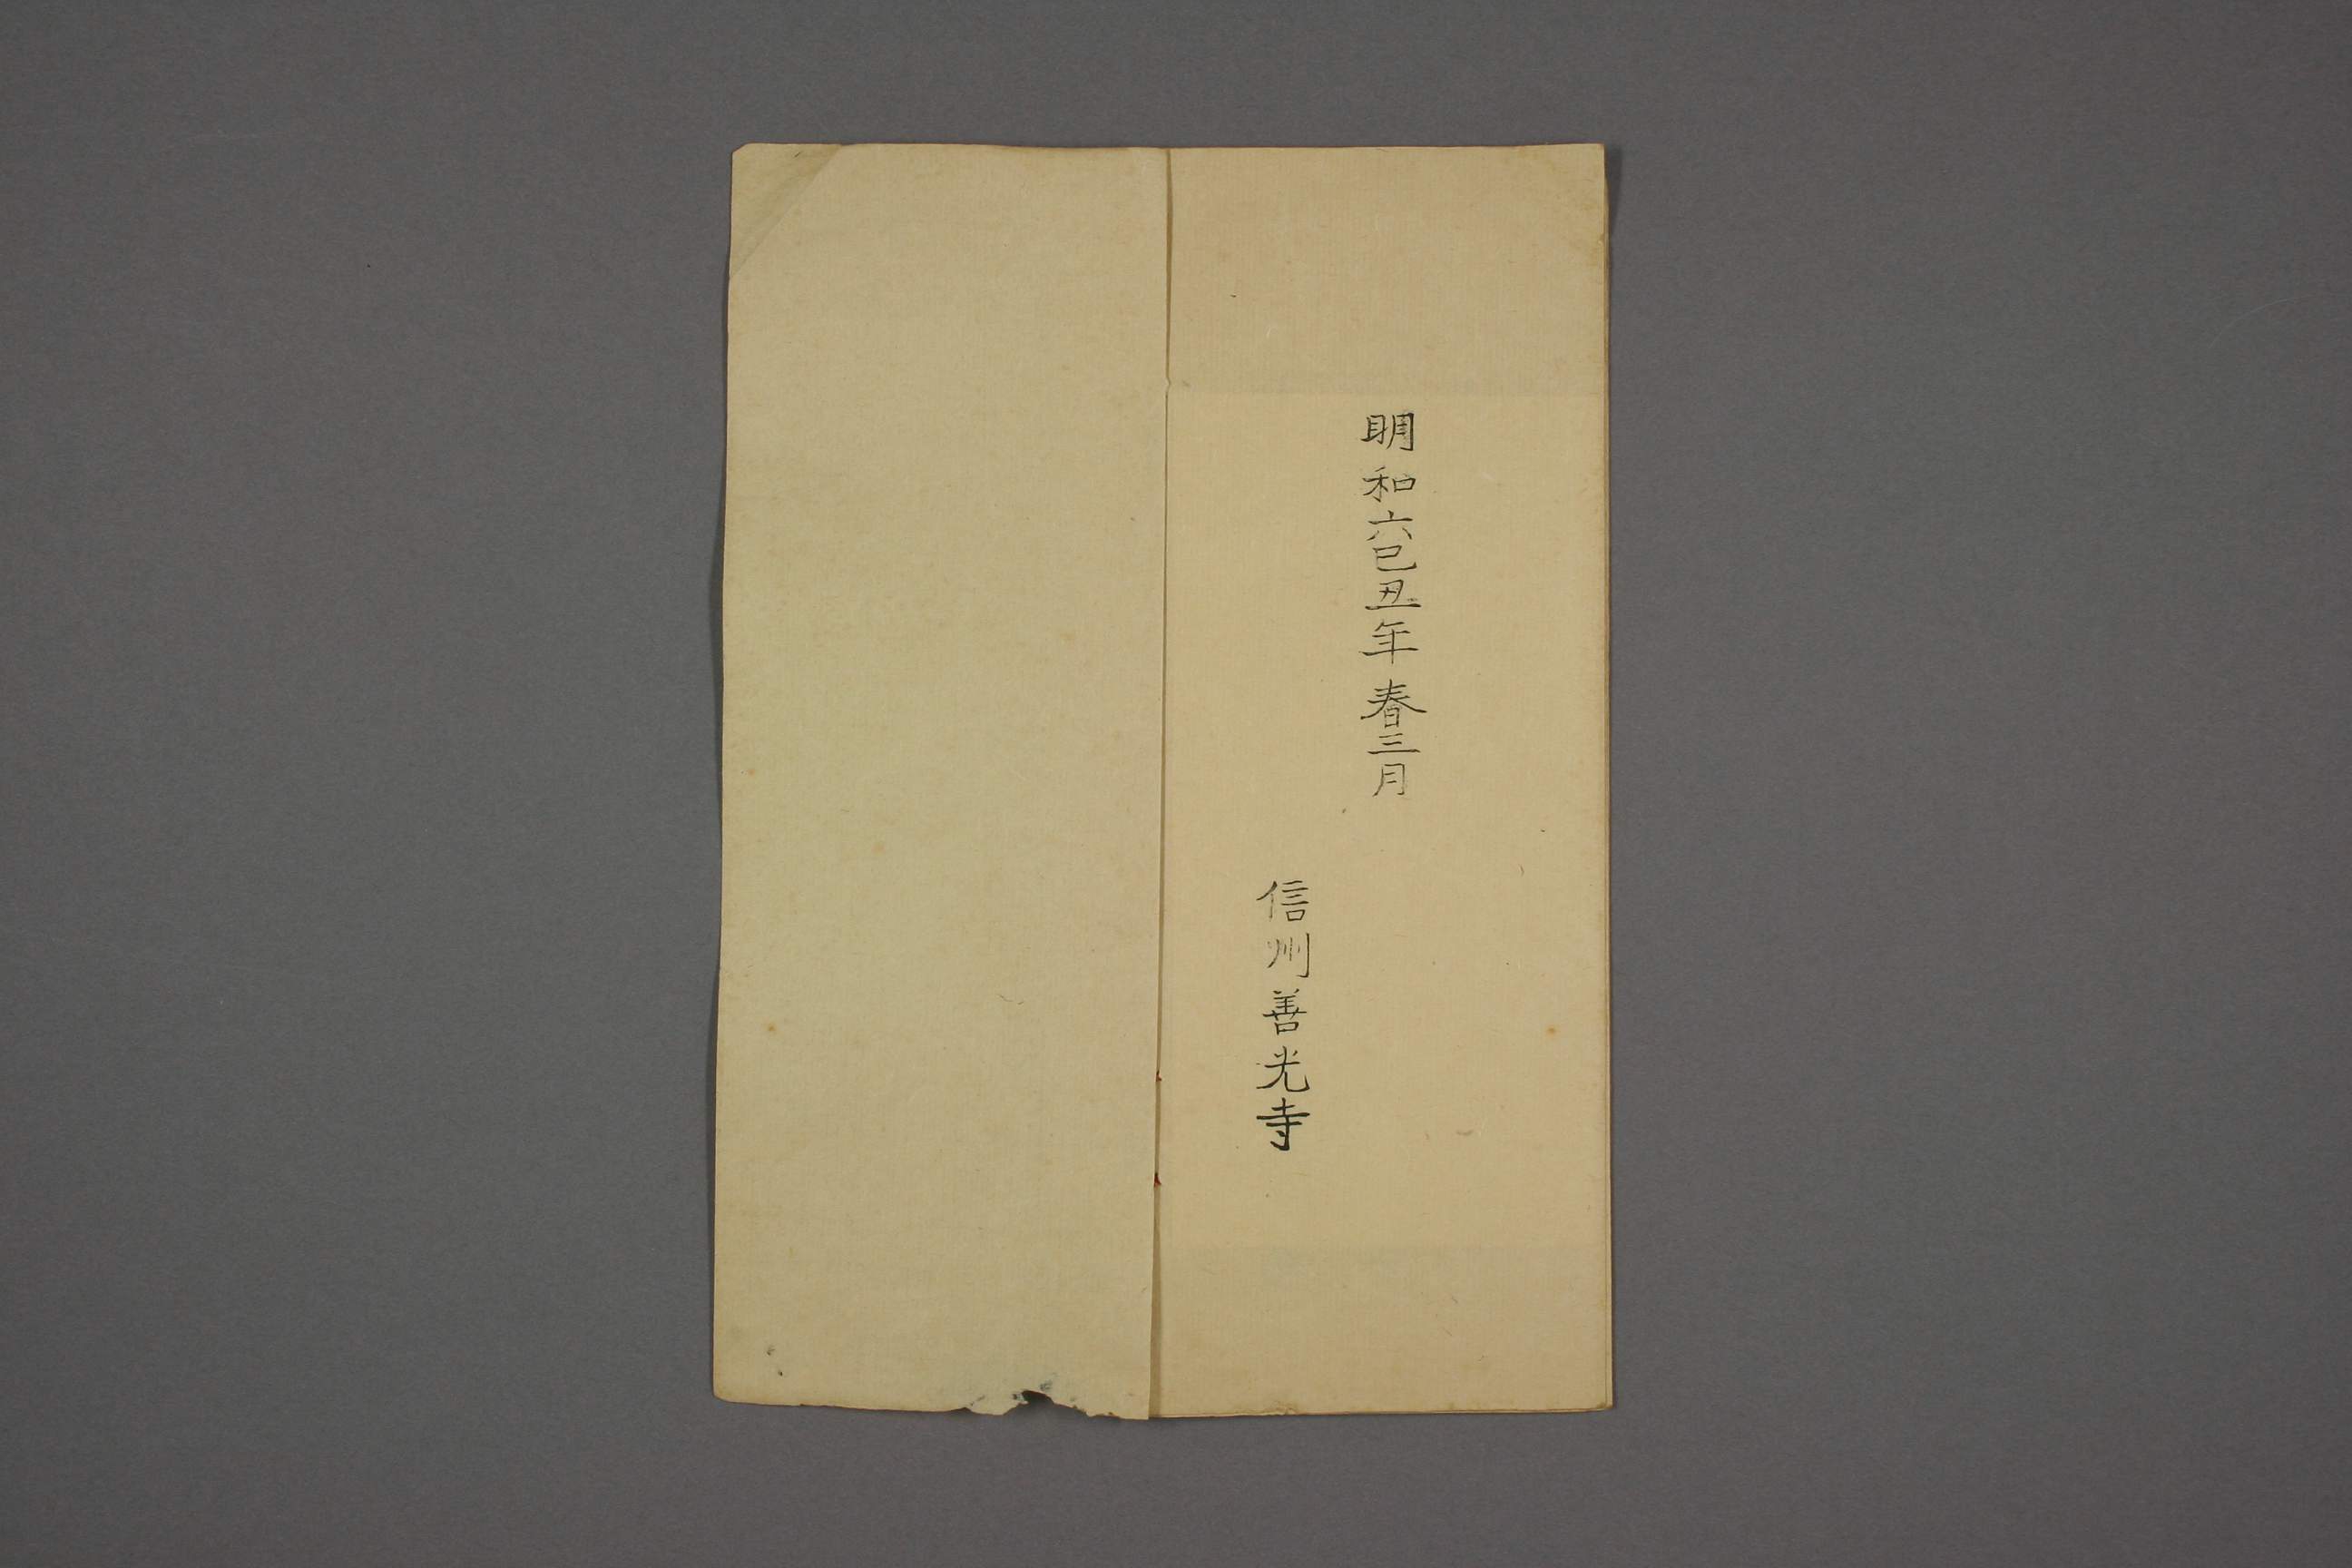 明和六己丑年春三月
信州善光寺